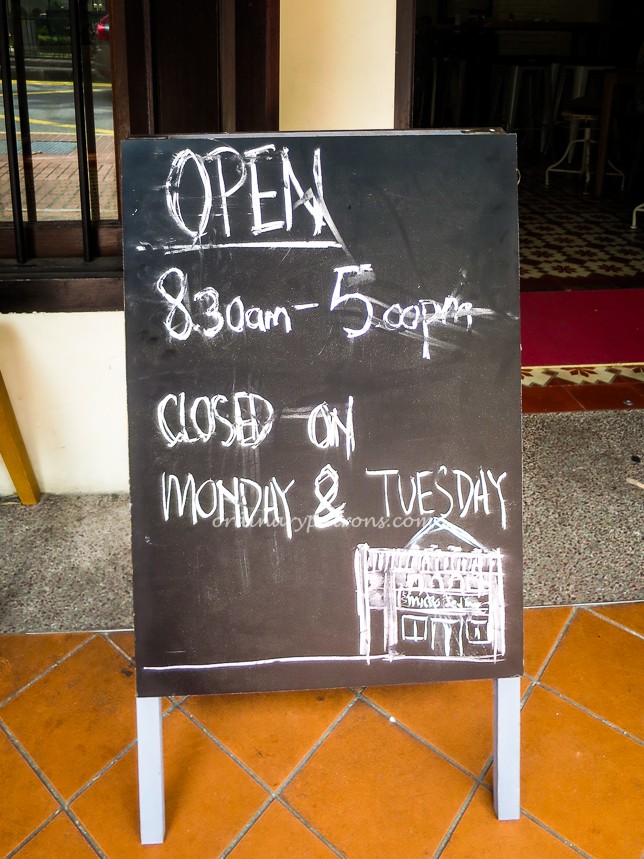 OPEN
8.30am - 5.00pm
CLOSED ON
MONDAY & TUESDAY
ordinarypatrons.com